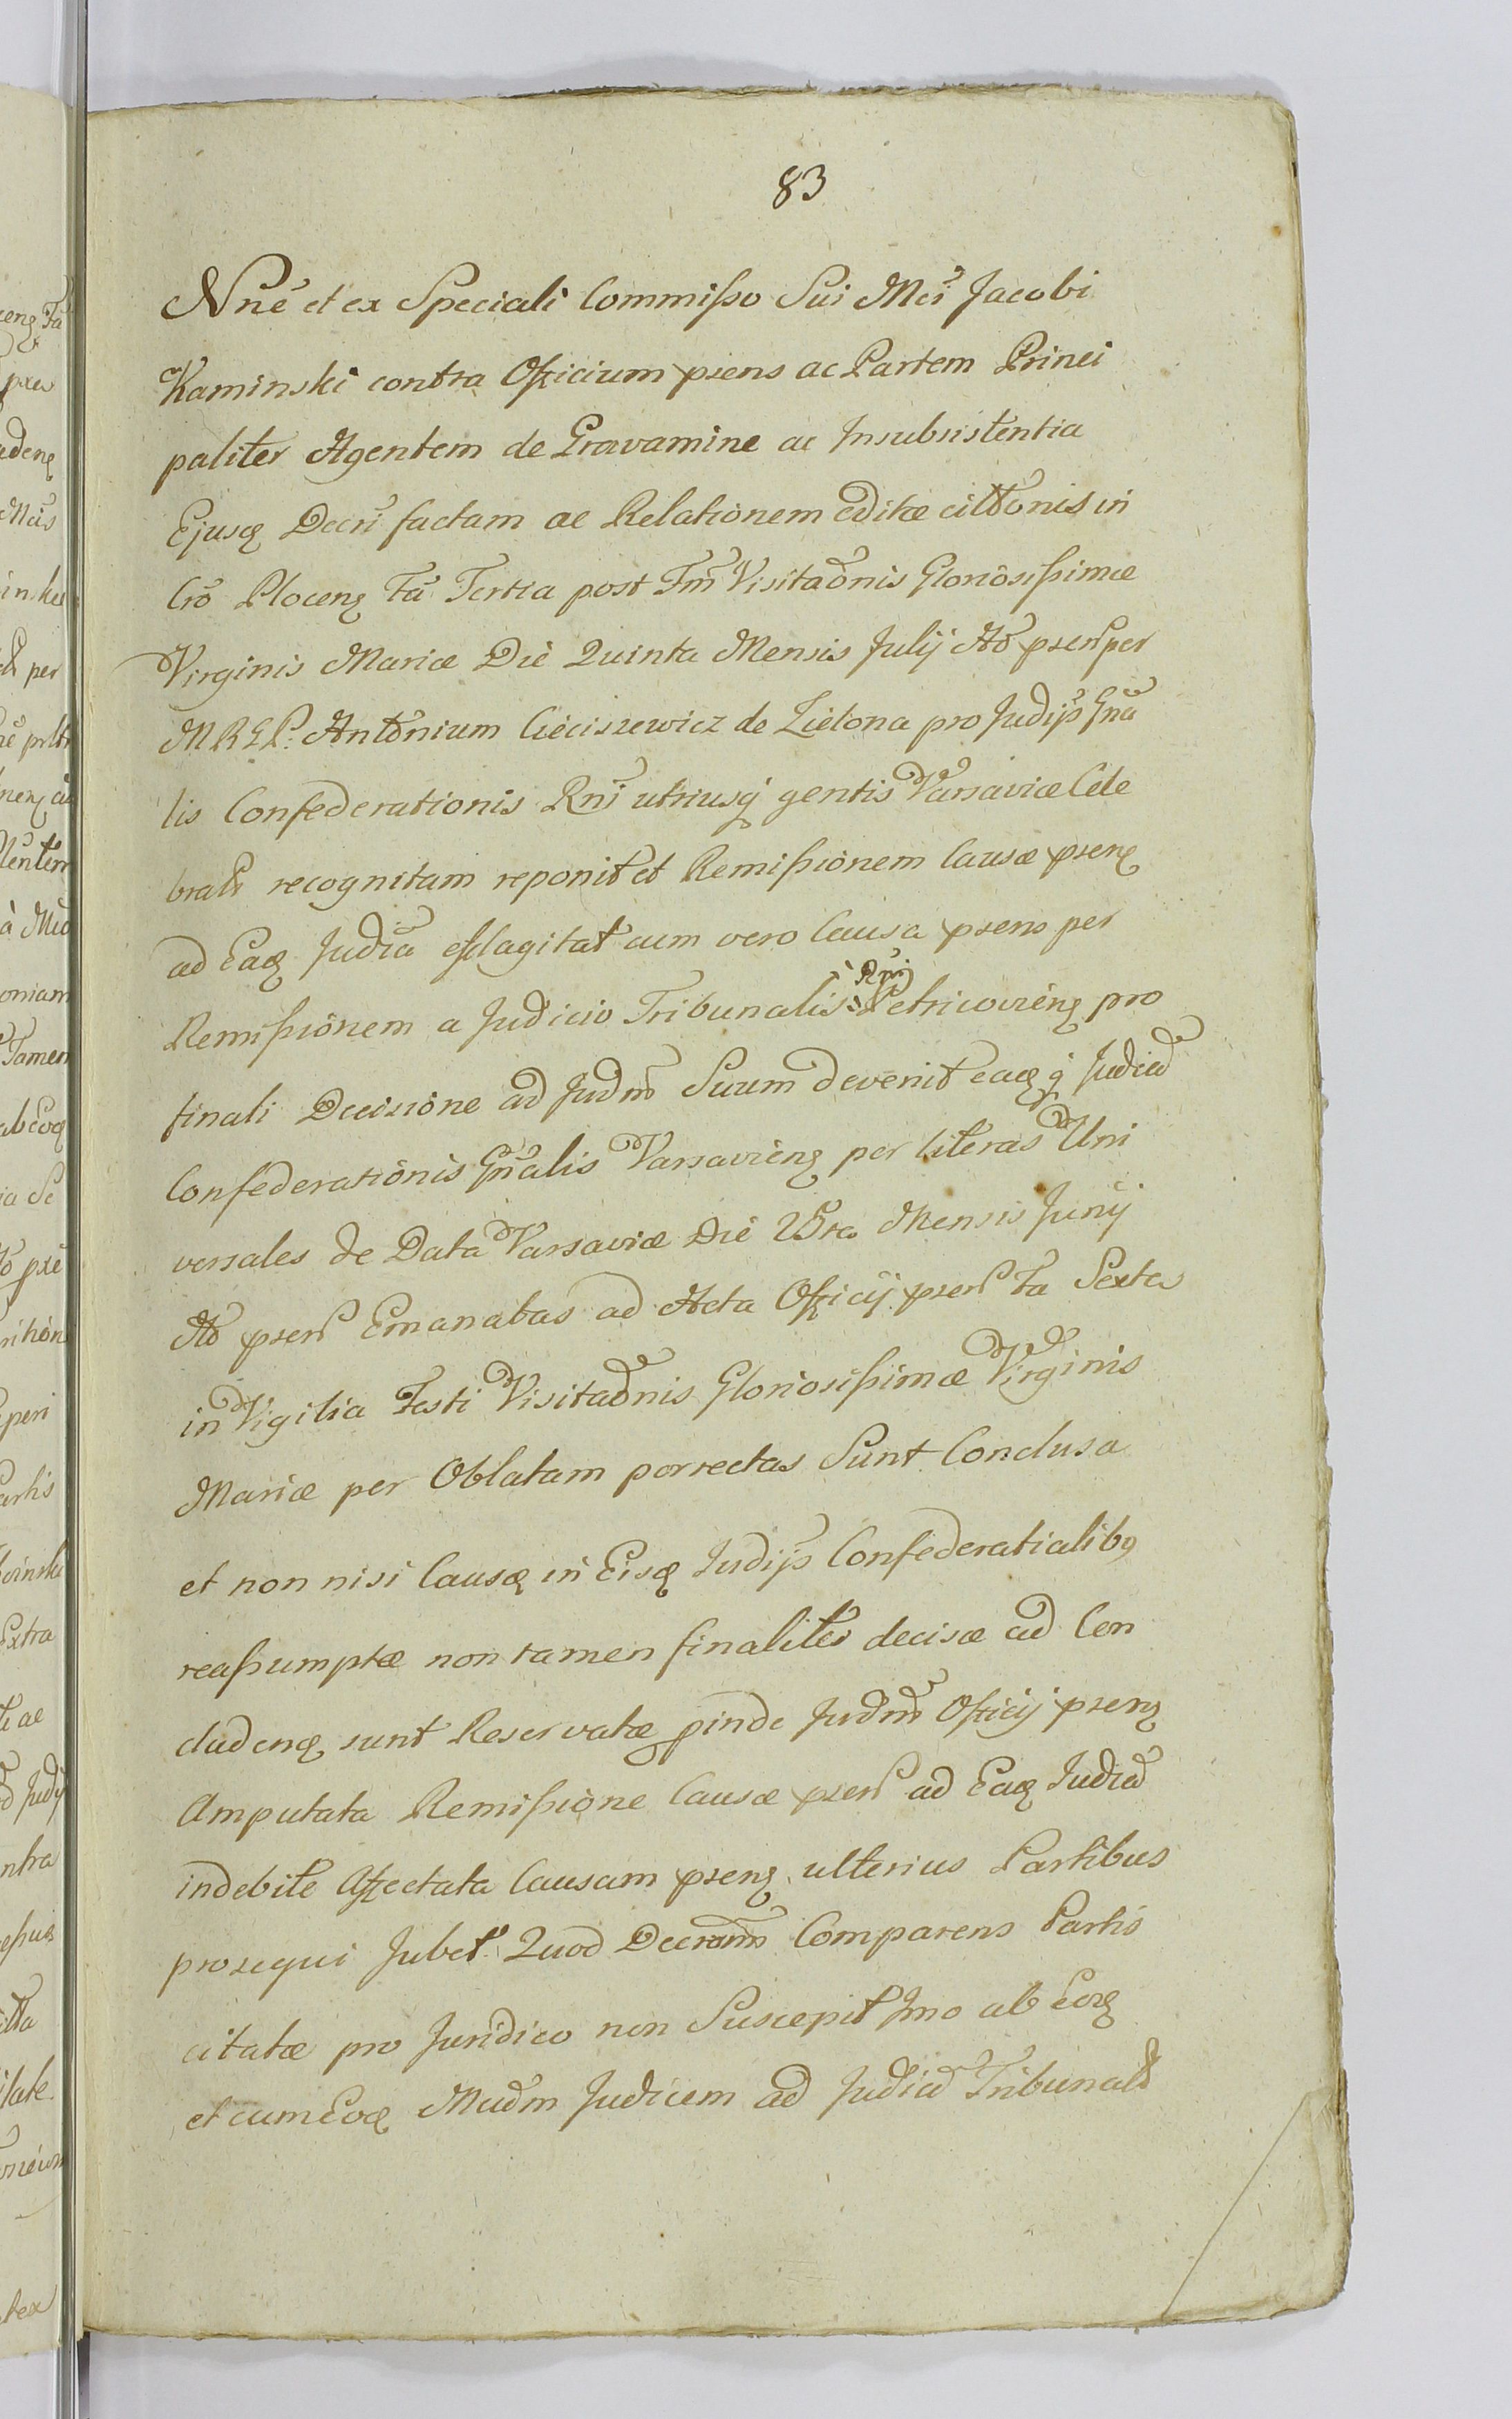 83
Nnē et ex Speciali Commisso Sui Mei Jacobi
Kaminski contra Officium psens ac Partem Princi
paliter Agentem de Gravamine ac Insubsistentia
Ejusq Decri factam ac Relationem editæ cittonis in
Cro Plocenq Fa Tertia post Fm Visitaonis Gloriosissimæ
Virginis Mariæ Die Quinta Mensis Julij Ao psen per
M R G P: Antonium Cieciszewicz de Zielona pro Judijs Gna
lis Confederationis Rni utriusq gentis Varsaviæ Cele
brat recognitam reponit et Remissionem Causæ psenq
ad Eaq Judia efflagitat cum vero Causa psens per
Remissionem a Judicio Tribunalis Rni Petricovienq pro
finali Decisione ad Judm Suum devenit eaq q Judica
Confederationis Gnalis Varsavienq per literas Uni
versales de Data Varsaviæ Die Mensis Junij
Ao psen Emanatas ad Acta Officij psen Fa Sexta
in Vigilia Festi Visitaonis Gloriosissimæ Virginis
Mariæ per Oblatam porrectas Sunt Conclusa
et non nisi Causæ in Eisq Judijs Confederatialibq
reassumptæ non tamen finaliter decisæ ad Con
cludenq sunt Reservatæ pinde Judm Officij psenq
Amputata Remissione Causæ psen ad Eaq Judica
indebite Affectata Causam psenq ulterius Partibus
prosequi Jubet Quod Decram Comparens Partis
citatæ pro Juridico non Suscepit Imo ab Eoq
et cum Eoq Mudm Judicem ad Judica Tribunal